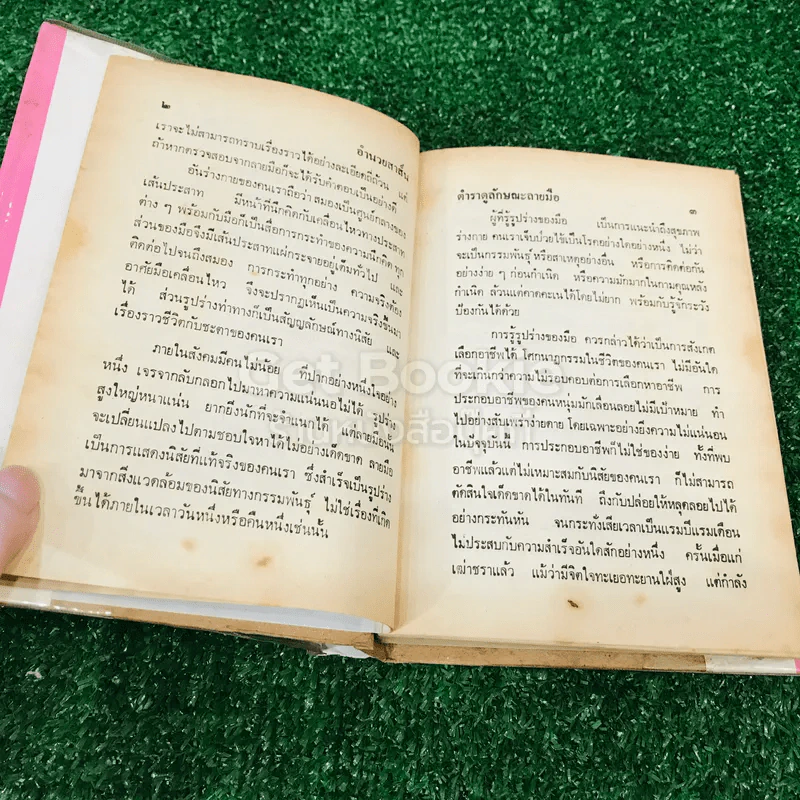 ๒
อำนวยสาส์น
เราจะไม่สามารถทราบเรื่องราวได้อย่างละเอียดถี่ถ้วน แต่
ถ้าหากตรวจสอบจากลายมือก็จะได้รับคำตอบเป็นอย่างดี
อันร่างกายของคนเราถือว่า สมองเป็นศูนย์กลางของ
เส้นประสาท มีหน้าที่นึกคิดกับเคลื่อนไหวทางประสาท
ต่าง ๆ พร้อมกับมือก็เป็นสื่อการกระทำของความนึกคิด ทุก
ส่วนของมือจึงมีเส้นประสาทแผ่กระจายอยู่เต็มทั่วไป และ
ติดต่อไปจนถึงสมอง การกระทำทุกอย่าง ความจริงต้อง
อาศัยมือเคลื่อนไหว จึงจะปรากฏเห็นเป็นความจริงขึ้นมา
ได้ ส่วนรูปร่างท่าทางก็เป็นสัญญลักษณ์ทางนิสัย และ
เรื่องราวชีวิตกับชะตาของคนเรา
ภายในสังคมมีคนไม่น้อย ที่ปากอย่างหนึ่งใจอย่าง
หนึ่ง เจรจากลับกลอกไปมาหาความแน่นอนไม่ได้ รูปร่าง
สูงใหญ่หนาแน่น ยากยิ่งนักที่จะจำแนกได้ แต่ลายมือนั้น
จะเปลี่ยนแปลงไปตามชอบใจหาได้ไม่อย่างเด็ดขาด ลายมือ
เป็นการแสดงนิสัยที่แท้จริงของคนเรา ซึ่งสำเร็จเป็นรูปร่าง
มาจากสิ่งแวดล้อมของนิสัยทางกรรมพันธุ์ ไม่ใช่เรื่องที่เกิด
ขึ้นได้ภายในเวลาวันหนึ่งหรือคืนหนึ่งเช่นนั้น
ตำราดูลักษณะลายมือ
๓
ผู้ที่รู้รูปร่างของมือ เป็นการแนะนำถึงสุขภาพ
ร่างกาย คนเราเจ็บป่วยไข้เป็นโรคอย่างใดอย่างหนึ่ง ไม่ว่า
จะเป็นกรรมพันธุ์ หรือสาเหตุอย่างอื่น หรือการติดต่อกัน
อย่างง่าย ๆ ก่อนกำเนิด หรือความมักมากในกามคุณหลัง
กำเนิด ล้วนแต่คาดคะเนได้โดยไม่ยาก พร้อมกับรู้จักระวัง
ป้องกันได้ด้วย
การรู้รูปร่างของมือ ควรกล่าวได้ว่าเป็นการสังเกต
เลือกอาชีพได้ โศกนาฏกรรมในชีวิตของคนเรา ไม่มีอันใด
ที่จะเกินกว่าความไม่รอบคอบต่อการเลือกหาอาชีพ การ
ประกอบอาชีพของคนหนุ่มมักเลื่อนลอยไม่มีเป้าหมาย ทำ
ไปอย่างสับเพร่าง่ายดาย โดยเฉพาะอย่างยิ่งความไม่แน่นอน
ในปัจจุบันนี้ การประกอบอาชีพก็ไม่ใช่ของง่าย ทั้งที่พบ
อาชีพแล้วแต่ไม่เหมาะสมกับนิสัยของคนเรา ก็ไม่สามารถ
ตัดสินใจเด็ดขาดได้ในทันที ถึงกับปล่อยให้หลุดลอยไปได้
อย่างกระทันหัน จนกระทั่งเสียเวลาเป็นแรมปีแรมเดือน
ไม่ประสบกับความสำเร็จอันใดสักอย่างหนึ่ง ครั้นเมื่อแก่
เฒ่าชราแล้ว แม้ว่ามีจิตใจทะเยอทะยานใฝ่สูง แต่กำลัง
Get Bookie
ร้านหนังสือมือที่